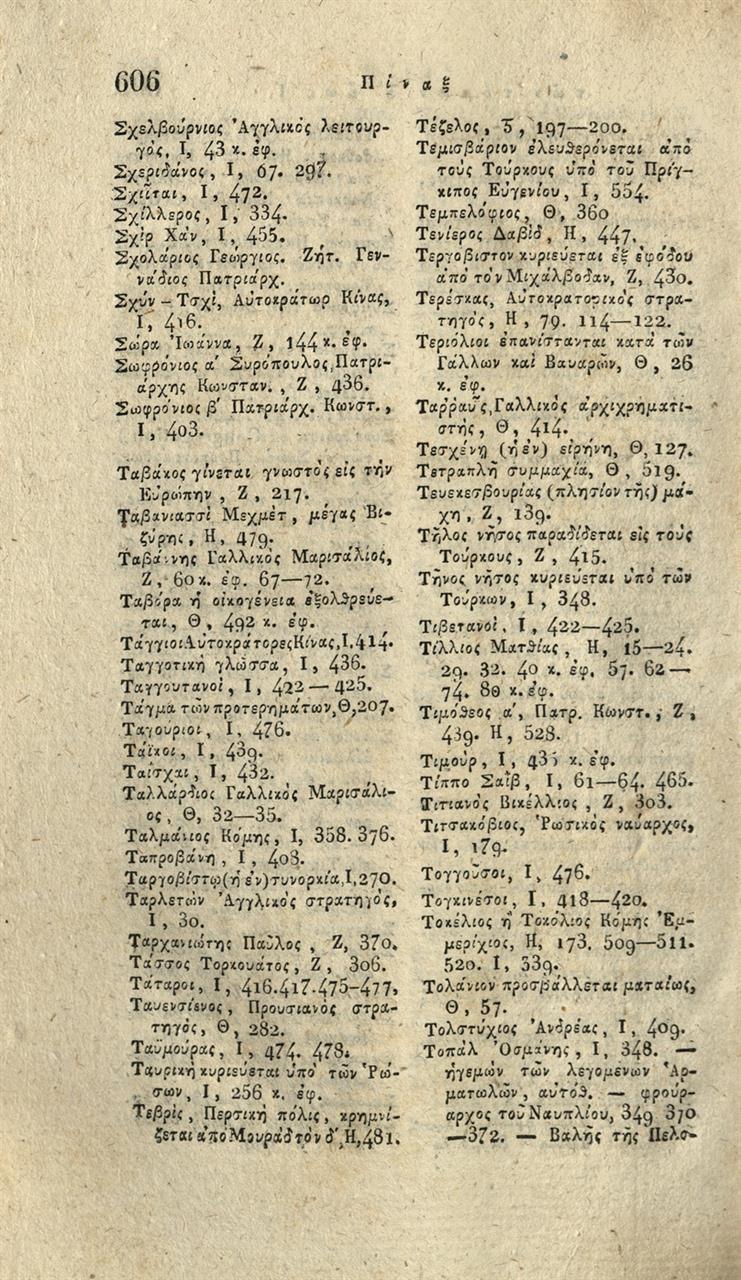 606
Πίναξ
Σχελβούρνιος Ἀγγλικὸς λειτουρ-
γὸς, Ι, 43 κ. ἐφ.
Σχεριδάνος, Ι, 67. 297.
Σχιῖται, Ι, 472.
Σχίλλερος, Ι, 334.
Σχὶρ Χάν, Ι, 455.
Σχολάριος Γεώργιος. Ζήτ. Γεν-
νάδιος Πατριάρχ.
Σχὺν - Τσχὶ, Αὐτοκράτωρ Κίνας,
Ι, 416.
Σώρα Ἰωάννα, Ζ, 144 κ. ἐφ.
Σωφρόνιος α΄ Συρόπουλος, Πατρι-
άρχης Κωνσταν., Ζ, 436.
Σωφρόνιος β΄ Πατριάρχ. Κωνστ.,
Ι, 403.
Ταβάκος γίνεται γνωστὸς εἰς τὴν
Εὐρώπην, Ζ, 217.
Ταβανιασσὶ Μεχμὲτ, μέγας Βι-
ζύρης, Η, 479.
Ταβάννης Γαλλικὸς Μαρισάλιος,
Ζ, 60 κ. ἐφ. 67—72.
Ταβόρα ἡ οἰκογένεια ἐξολθρεύε-
ται, Θ, 492 κ. ἐφ.
Τάγγιοι Αὐτοκράτορες Κίνας, Ι. 414.
Ταγγοτικὴ γλῶσσα, Ι, 436.
Ταγγουτανοὶ, Ι, 422—425.
Τάγμα τῶν προτερημάτων, Θ, 207.
Ταγούριοι, Ι, 476.
Ταΐκοι, Ι, 439.
Ταΐσχαι, Ι, 432.
Ταλλάρδιος Γαλλικὸς Μαρισάλι-
ος, Θ, 32—35.
Ταλμάνιος Κόμης, Ι, 358. 376.
Ταπροβάνη, Ι, 408.
Ταργοβίστῳ (ἡ ἐν) συνορκία, Ι, 270.
Ταρλετὼν Ἀγγλικὸς στρατηγὸς,
Ι, 30.
Ταρχανιώτης Παῦλος, Ζ, 370.
Τάσσος Τορκουάτος, Ζ, 306.
Τάταροι, Ι, 416. 417. 475-477,
Ταυενσίενος, Προυσιανὸς στρα-
τηγὸς, Θ, 282.
Ταϋμούρας, Ι, 474. 478.
Ταυρικὴ κυριεύεται ὑπὸ τῶν Ῥώ-
σων, Ι, 256 κ. ἐφ.
Τεβρὶς, Περσικὴ πόλις, κρημνί-
ζεται ἀπὸ Μουρὰδ τὸν δ΄, Η, 481.
Τέζελος, Ϛ, 197—200.
Τεμισβάριον ἐλευθερόνεται ἀπὸ
τοὺς Τούρκους ὑπὸ τοῦ Πρίγ-
κιπος Εὐγενίου, Ι, 554.
Τεμπελόφιος, Θ, 360
Τενίερος Δαβὶδ, Η, 447.
Τεργοβιστον κυριεύεται ἐξ ἐφόδου
ἀπὸ τὸν Μιχάλβοδαν, Ζ, 430.
Τερέσκας, Αὐτοκρατορικὸς στρα-
τηγὸς, Η, 79. 114—122.
Τεριόλιοι ἐπανίστανται κατὰ τῶν
Γάλλων καὶ Βαυαρῶν, Θ, 26
κ. ἐφ.
Ταῤῥαῦς, Γαλλικὸς ἀρχιχρηματι-
στής, Θ, 414.
Τεσχένῃ (ἡ ἐν) εἰρήνη, Θ, 127.
Τετραπλῆ συμμαχία, Θ, 519.
Τευεκεσβουρίας (πλησίον τῆς) μά-
χη, Ζ, 139.
Τῆλος νῆσος παραδίδεται εἰς τοὺς
Τούρκους, Ζ, 415.
Τῆνος νῆσος κυριεύεται ὑπὸ τῶν
Τούρκων, Ι, 348.
Τιβετανοὶ, Ι, 422—425.
Τίλλιος Ματθίας, Η, 15—24.
29. 32. 40 κ. ἐφ. 57. 62—
74. 80 κ. ἐφ.
Τιμόθεος α΄, Πατρ. Κωνστ., Ζ,
439. Η, 528.
Τιμούρ, Ι, κ. ἐφ.
Τίππο Σαῒβ, Ι, 61—64. 465.
Τιτιανὸς Βικέλλιος, Ζ, 303.
Τιτσακόβιος, Ῥωσικὸς ναύαρχος,
Ι, 179.
Τογγοῦσοι, Ι, 476.
Τογκινέσοι, Ι, 418—420.
Τοκέλιος ἢ Τοκόλιος Κόμης Ἐμ-
μερίχιος, Η, 173. 509—511.
520. Ι, 339.
Τολάνιον προσβάλλεται ματαίως,
Θ, 57.
Τολστύχιος Ἀνδρέας, Ι, 409.
Τοπὰλ Ὀσμάνης, Ι, 348. —
ἡγεμὼν τῶν λεγομένων Ἀρ-
ματωλῶν, αὐτόθ. — φρούρ-
αρχος τοῦ Ναυπλίου, 349 370
—372. — Βαλῆς τῆς Πελο-